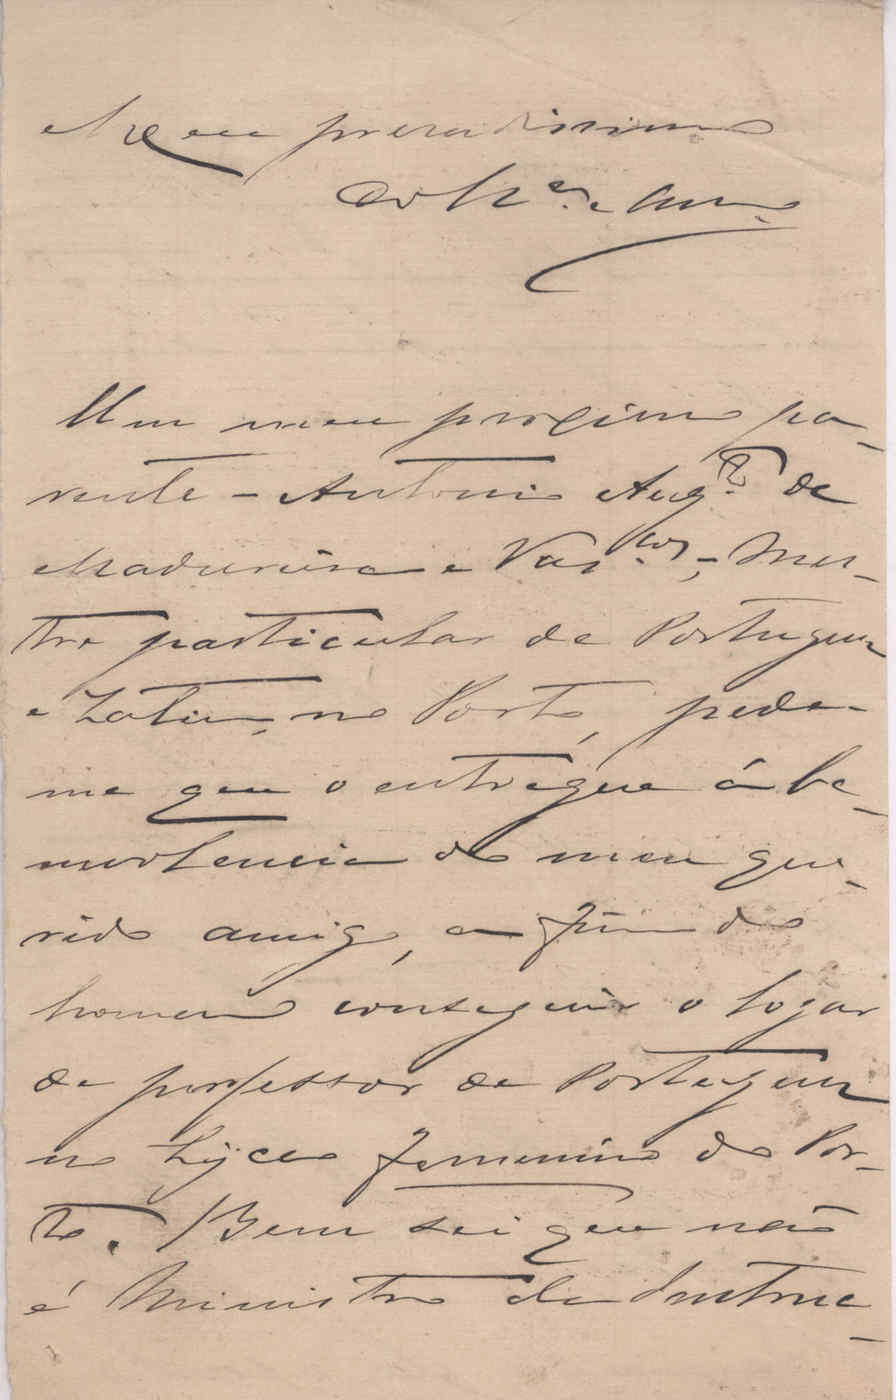 Meu presadissimo
Am.
Um meu proximo pa-
rente - Antonio Aug.to de
Madureira e Vas.los, - Mes-
tre particular de Portuguez
e Latim, no Porto, pede-
me que o entregue á be-
nevolencia do meu que-
rido amigo, a fim do
homem conseguir o logar
de professor de Portuguez
no Lyceo femenino do Por-
to. Bem sei que não
é Ministro da Instruc-